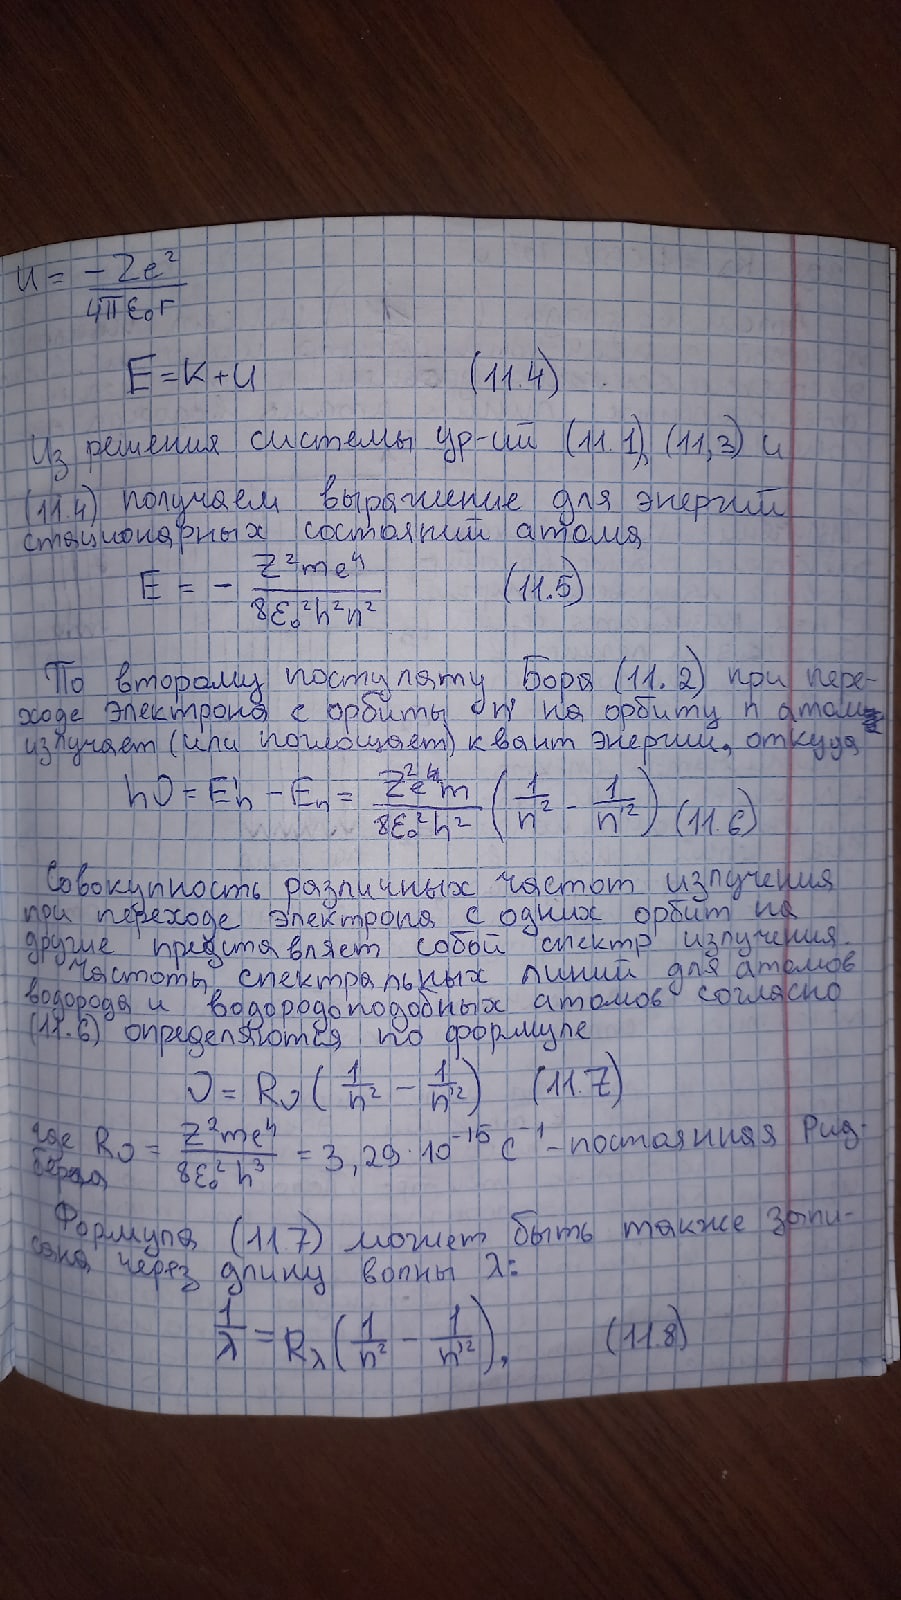 U = -Ze² / 4πε₀r
E = K + U (11.4)
Из решения системы ур-ий (11.1), (11,3) и
(11.4) получаем выражение для энергий
стационарных состояний атома
E = - Z²me⁴ / 8ε₀²h²n² (11.5)
По второму постулату Бора (11.2) при пере-
ходе электрона с орбиты n' на орбиту n атом
излучает (или поглощает) квант энергии, откуда
hυ = En' - En = Z²e⁴m / 8ε₀²h² (1/n² - 1/n'²) (11.6)
Совокупность различных частот излучения
при переходе электрона с одних орбит на
другие представляет собой спектр излучения.
Частоты спектральных линий для атомов
водорода и водородоподобных атомов согласно
(11.6) определяются по формуле
υ = Rυ (1/n² - 1/n'²) (11.7)
где Rυ = Z²me⁴ / 8ε₀²h³ = 3,29·10⁻¹⁵ с⁻¹ - постоянная Рид-
берга
Формула (11.7) может быть также запи-
сана через длину волны λ:
1/λ = Rλ (1/n² - 1/n'²), (11.8)